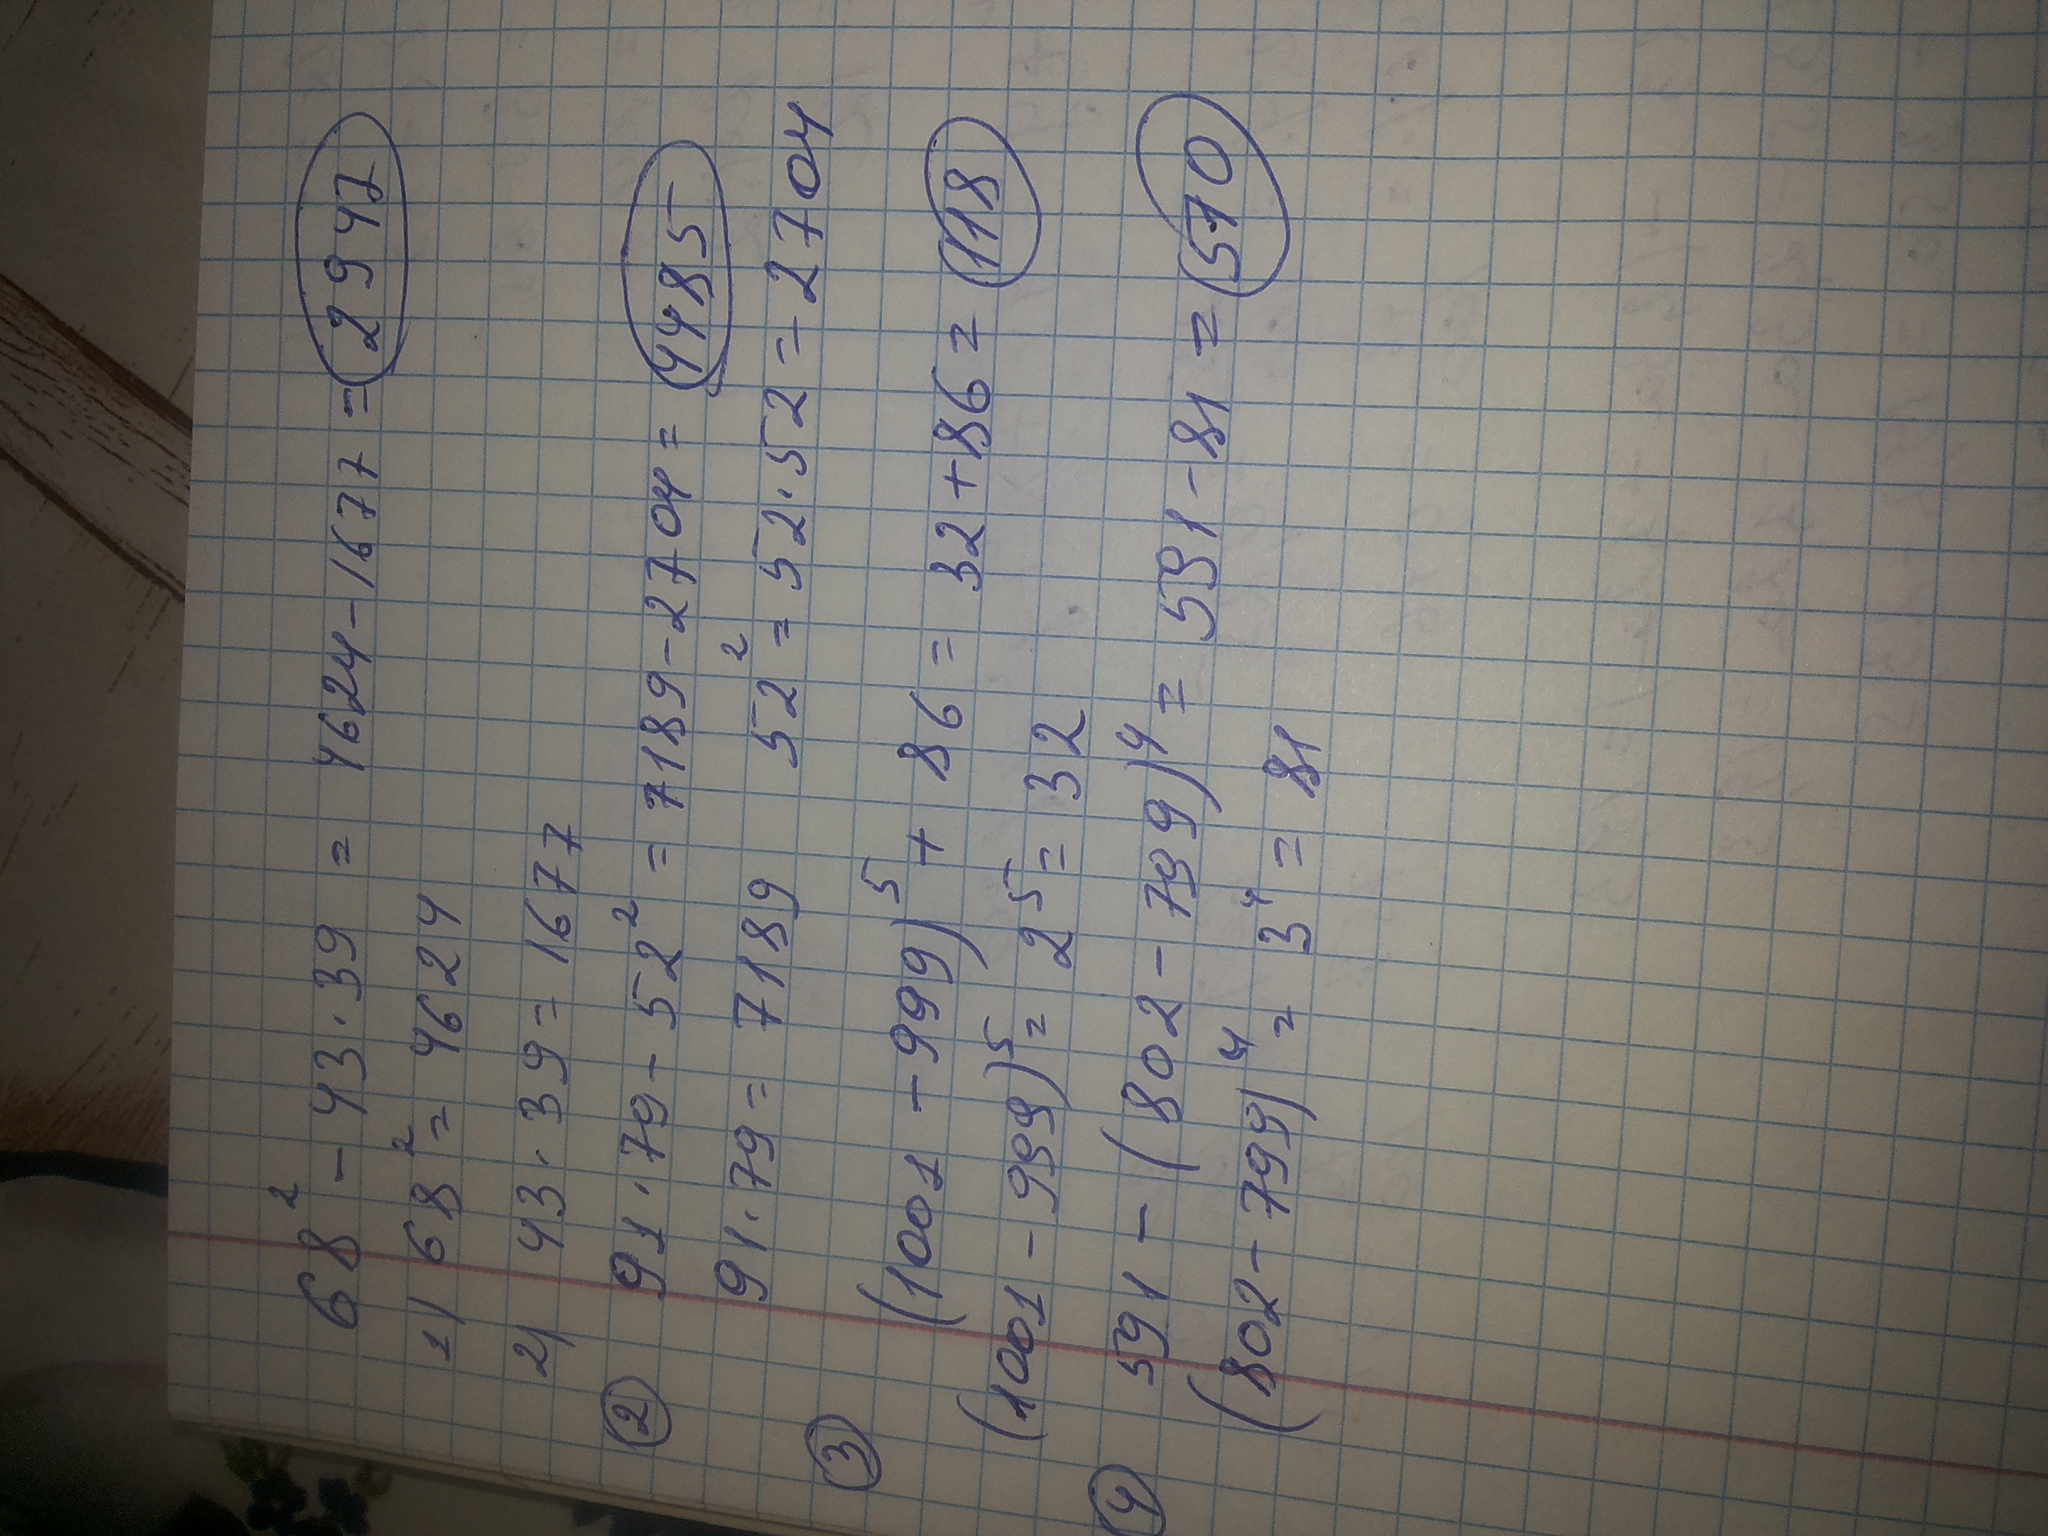 68² - 43 · 39 = 4624 - 1677 = 2947
1) 68² = 4624
2) 43 · 39 = 1677
② 91 · 79 - 52² = 7189 - 2704 = 4485
91 · 79 = 7189 52² = 52 · 52 = 2704
③ (1001 - 999)⁵ + 86 = 32 + 86 = 118
(1001 - 999)⁵ = 2⁵ = 32
④ 591 - (802 - 799)⁴ = 591 - 81 = 510
(802 - 799)⁴ = 3⁴ = 81